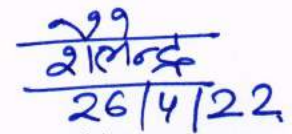 शैलेन्द्र
26/4/22